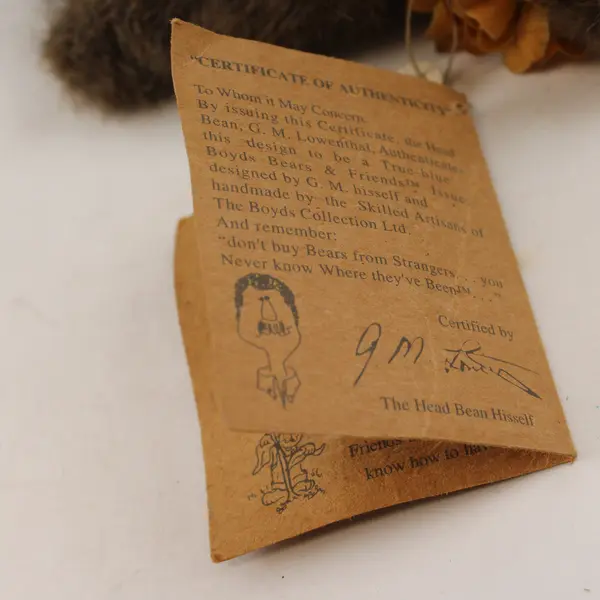 "CERTIFICATE OF AUTHENTICITY"
To Whom it May Concern
By issuing this Certificate, the Head
Bean, G. M. Lowenthal, Authenticates,
this design to be a True-blue
Boyds Bears & Friends™ Issue
designed by G. M. hisself and
handmade by the Skilled Artisans of
The Boyds Collection Ltd.
And remember:
"don't buy Bears from Strangers. . . you
Never know Where they've Been™. . ."
Certified by
G M
The Head Bean Hisself
Friends
know how to